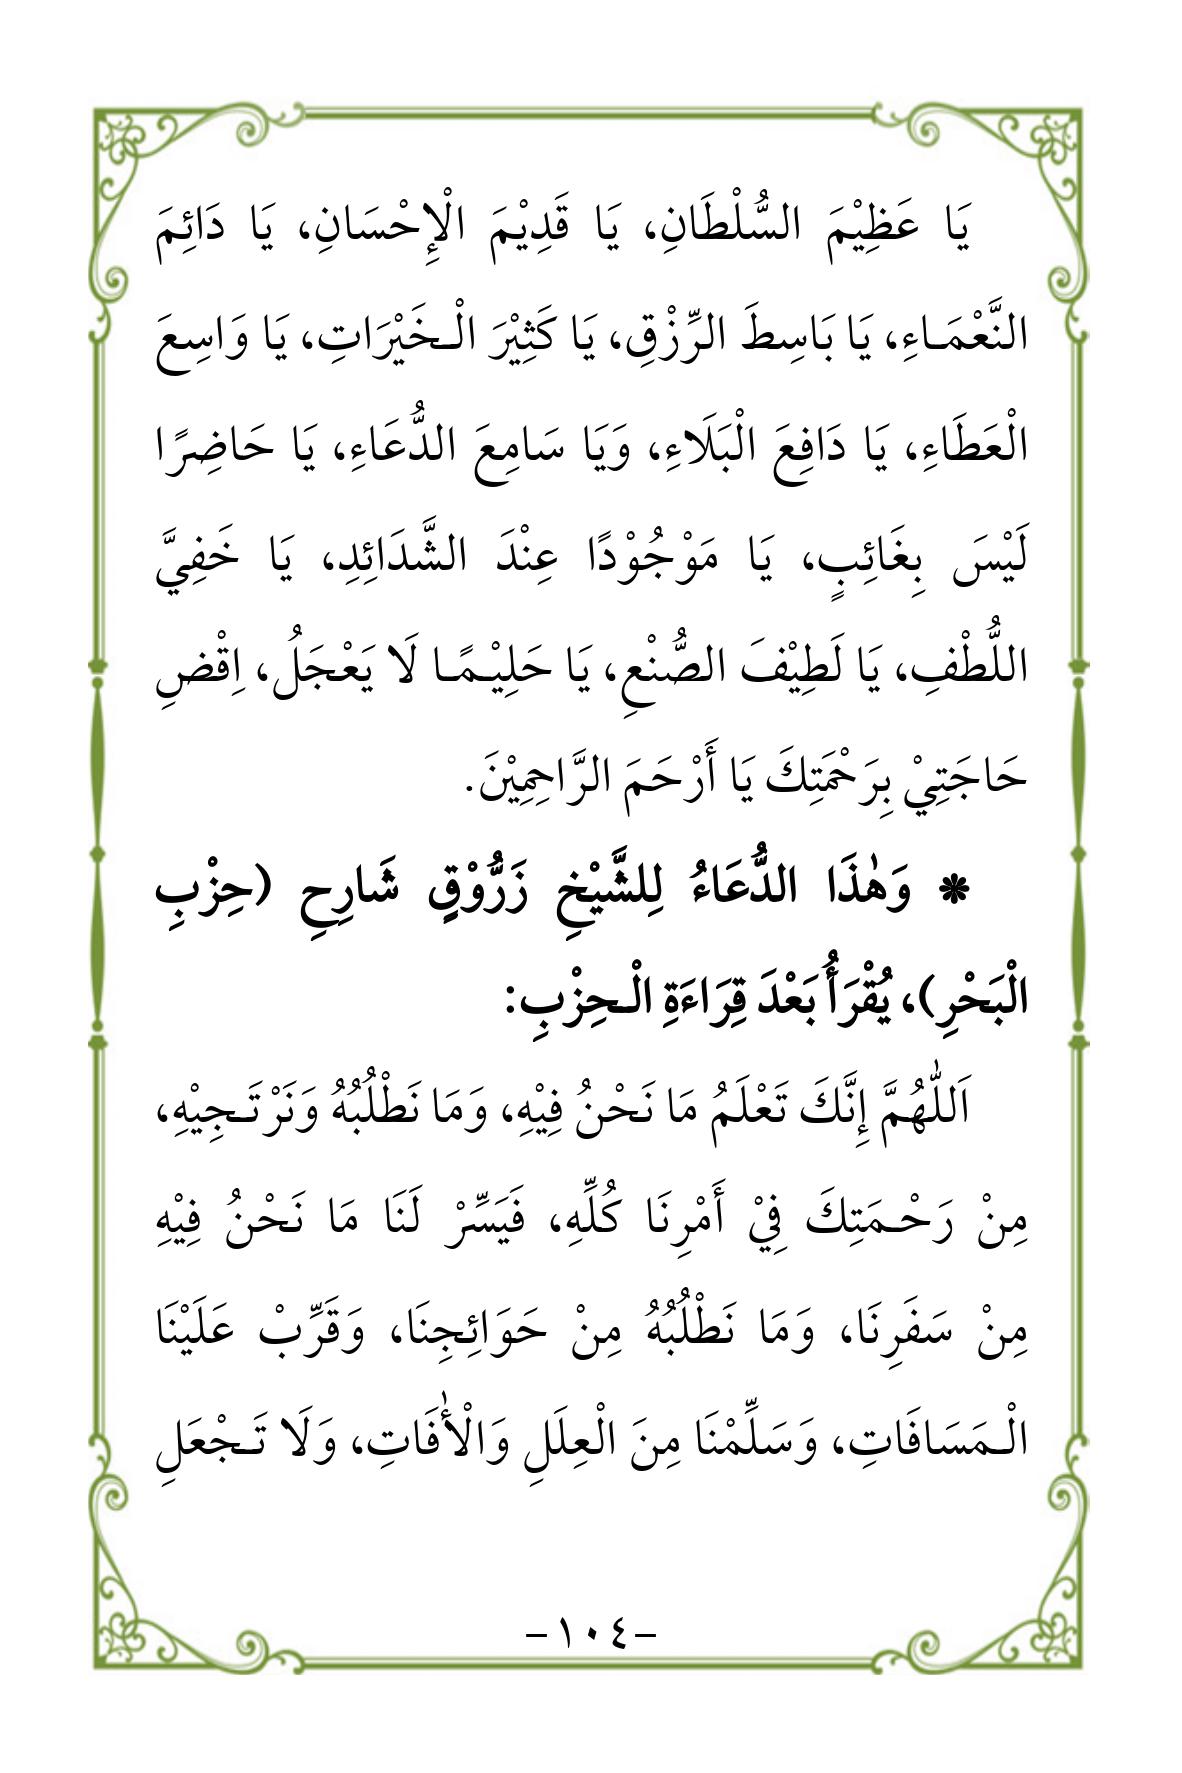 يَا عَظِيْمَ السُّلْطَانِ، يَا قَدِيْمَ الْإِحْسَانِ، يَا دَائِمَ
النَّعْمَـاءِ، يَا بَاسِطَ الرِّزْقِ، يَا كَثِيْرَ الْـخَيْرَاتِ، يَا وَاسِعَ
الْعَطَاءِ، يَا دَافِعَ الْبَلَاءِ، وَيَا سَامِعَ الدُّعَاءِ، يَا حَاضِرًا
لَيْسَ بِغَائِبٍ، يَا مَوْجُوْدًا عِنْدَ الشَّدَائِدِ، يَا خَفِيَّ
اللُّطْفِ، يَا لَطِيْفَ الصُّنْعِ، يَا حَلِيْـمًـا لَا يَعْجَلُ، اِقْضِ
حَاجَتِيْ بِرَحْمَتِكَ يَا أَرْحَمَ الرَّاحِمِيْنَ.
❃ وَهٰذَا الدُّعَاءُ لِلشَّيْخِ زَرُّوْقٍ شَارِحِ (حِزْبِ
الْبَحْرِ)، يُقْرَأُ بَعْدَ قِرَاءَةِ الْـحِزْبِ:
اَللّٰهُمَّ إِنَّكَ تَعْلَمُ مَا نَحْنُ فِيْهِ، وَمَا نَطْلُبُهُ وَنَرْتَـجِيْهِ،
مِنْ رَحْـمَتِكَ فِيْ أَمْرِنَا كُلِّهِ، فَيَسِّرْ لَنَا مَا نَحْنُ فِيْهِ
مِنْ سَفَرِنَا، وَمَا نَطْلُبُهُ مِنْ حَوَائِجِنَا، وَقَرِّبْ عَلَيْنَا
الْـمَسَافَاتِ، وَسَلِّمْنَا مِنَ الْعِلَلِ وَالْأٰفَاتِ، وَلَا تَـجْعَلِ
– ١٠٤ –